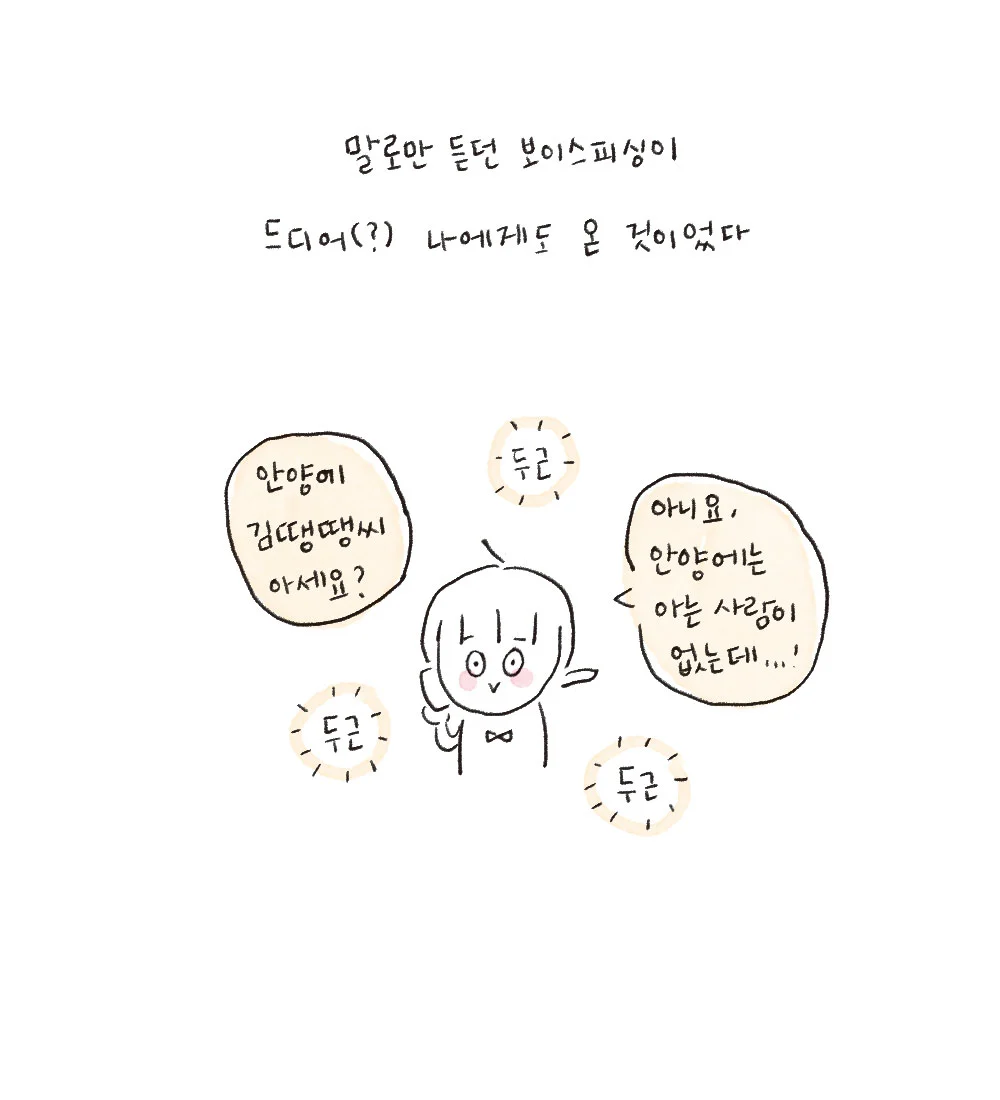 말로만 듣던 보이스피싱이
드디어(?) 나에게도 온 것이었다
두근
안양에
김땡땡씨
아세요?
아니요,
안양에는
아는 사람이
없는데...!
두근
두근